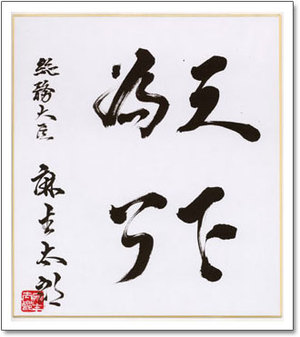 天下
為公
総務大臣 麻生太郎